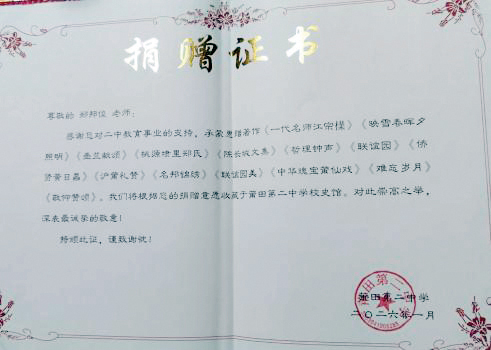 捐赠证书
尊敬的 郑邦俊 老师：
感谢您对二中教育事业的支持，承蒙惠赠著作《一代名师江宗樑》《映雪春晖夕
照明》《壶兰献颂》《桃源埭里郑氏》《陈长城文集》《哲理钟声》《联谊园》《侨
贤黄日昌》《沪莆礼赞》《名邦锦绣》《联谊园吴》《中华瑰宝莆仙戏》《难忘岁月》
《敬仰赞颂》。我们将根据您的捐赠意愿收藏于莆田第二中学校史馆。对此崇高之举，
深表最诚挚的敬意！
特颁此证，谨致谢忱！
莆田第二中学
二〇二六年一月